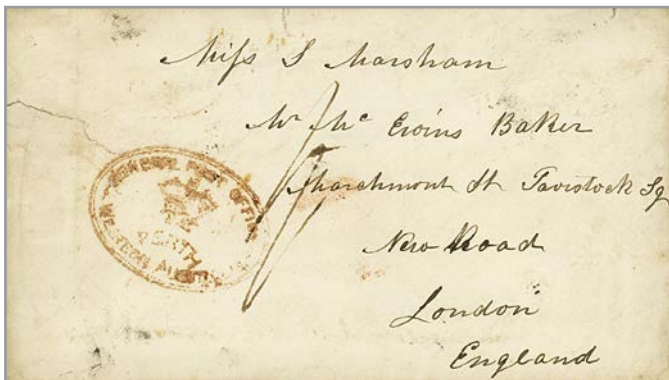 Miss S Marsham
Mr Mc Ewins Baker
Marchmont St Tavistock Sq
New Road
London
England
GENERAL POST OFFICE
PERTH
WESTERN AUSTRALIA